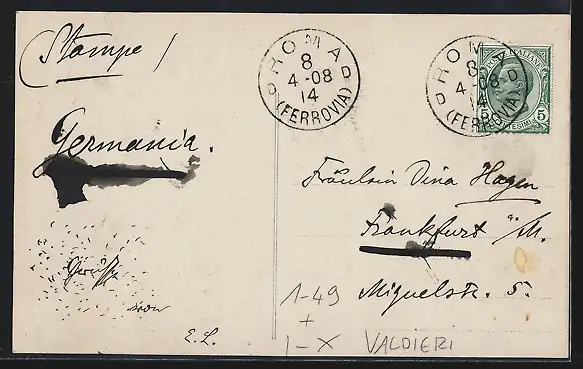 (Stampe)
Germania.
Grüße
von
E. L.
ROMA
8
4-08
14
(FERROVIA)
ROMA
8
4-08
14
(FERROVIA)
POSTE ITALIANE
5 CENTESIMI 5
Fräulein Dina Hagen
Frankfurt a/M.
Miquelstr. 5.
1-49
+
1-X VALDIERI